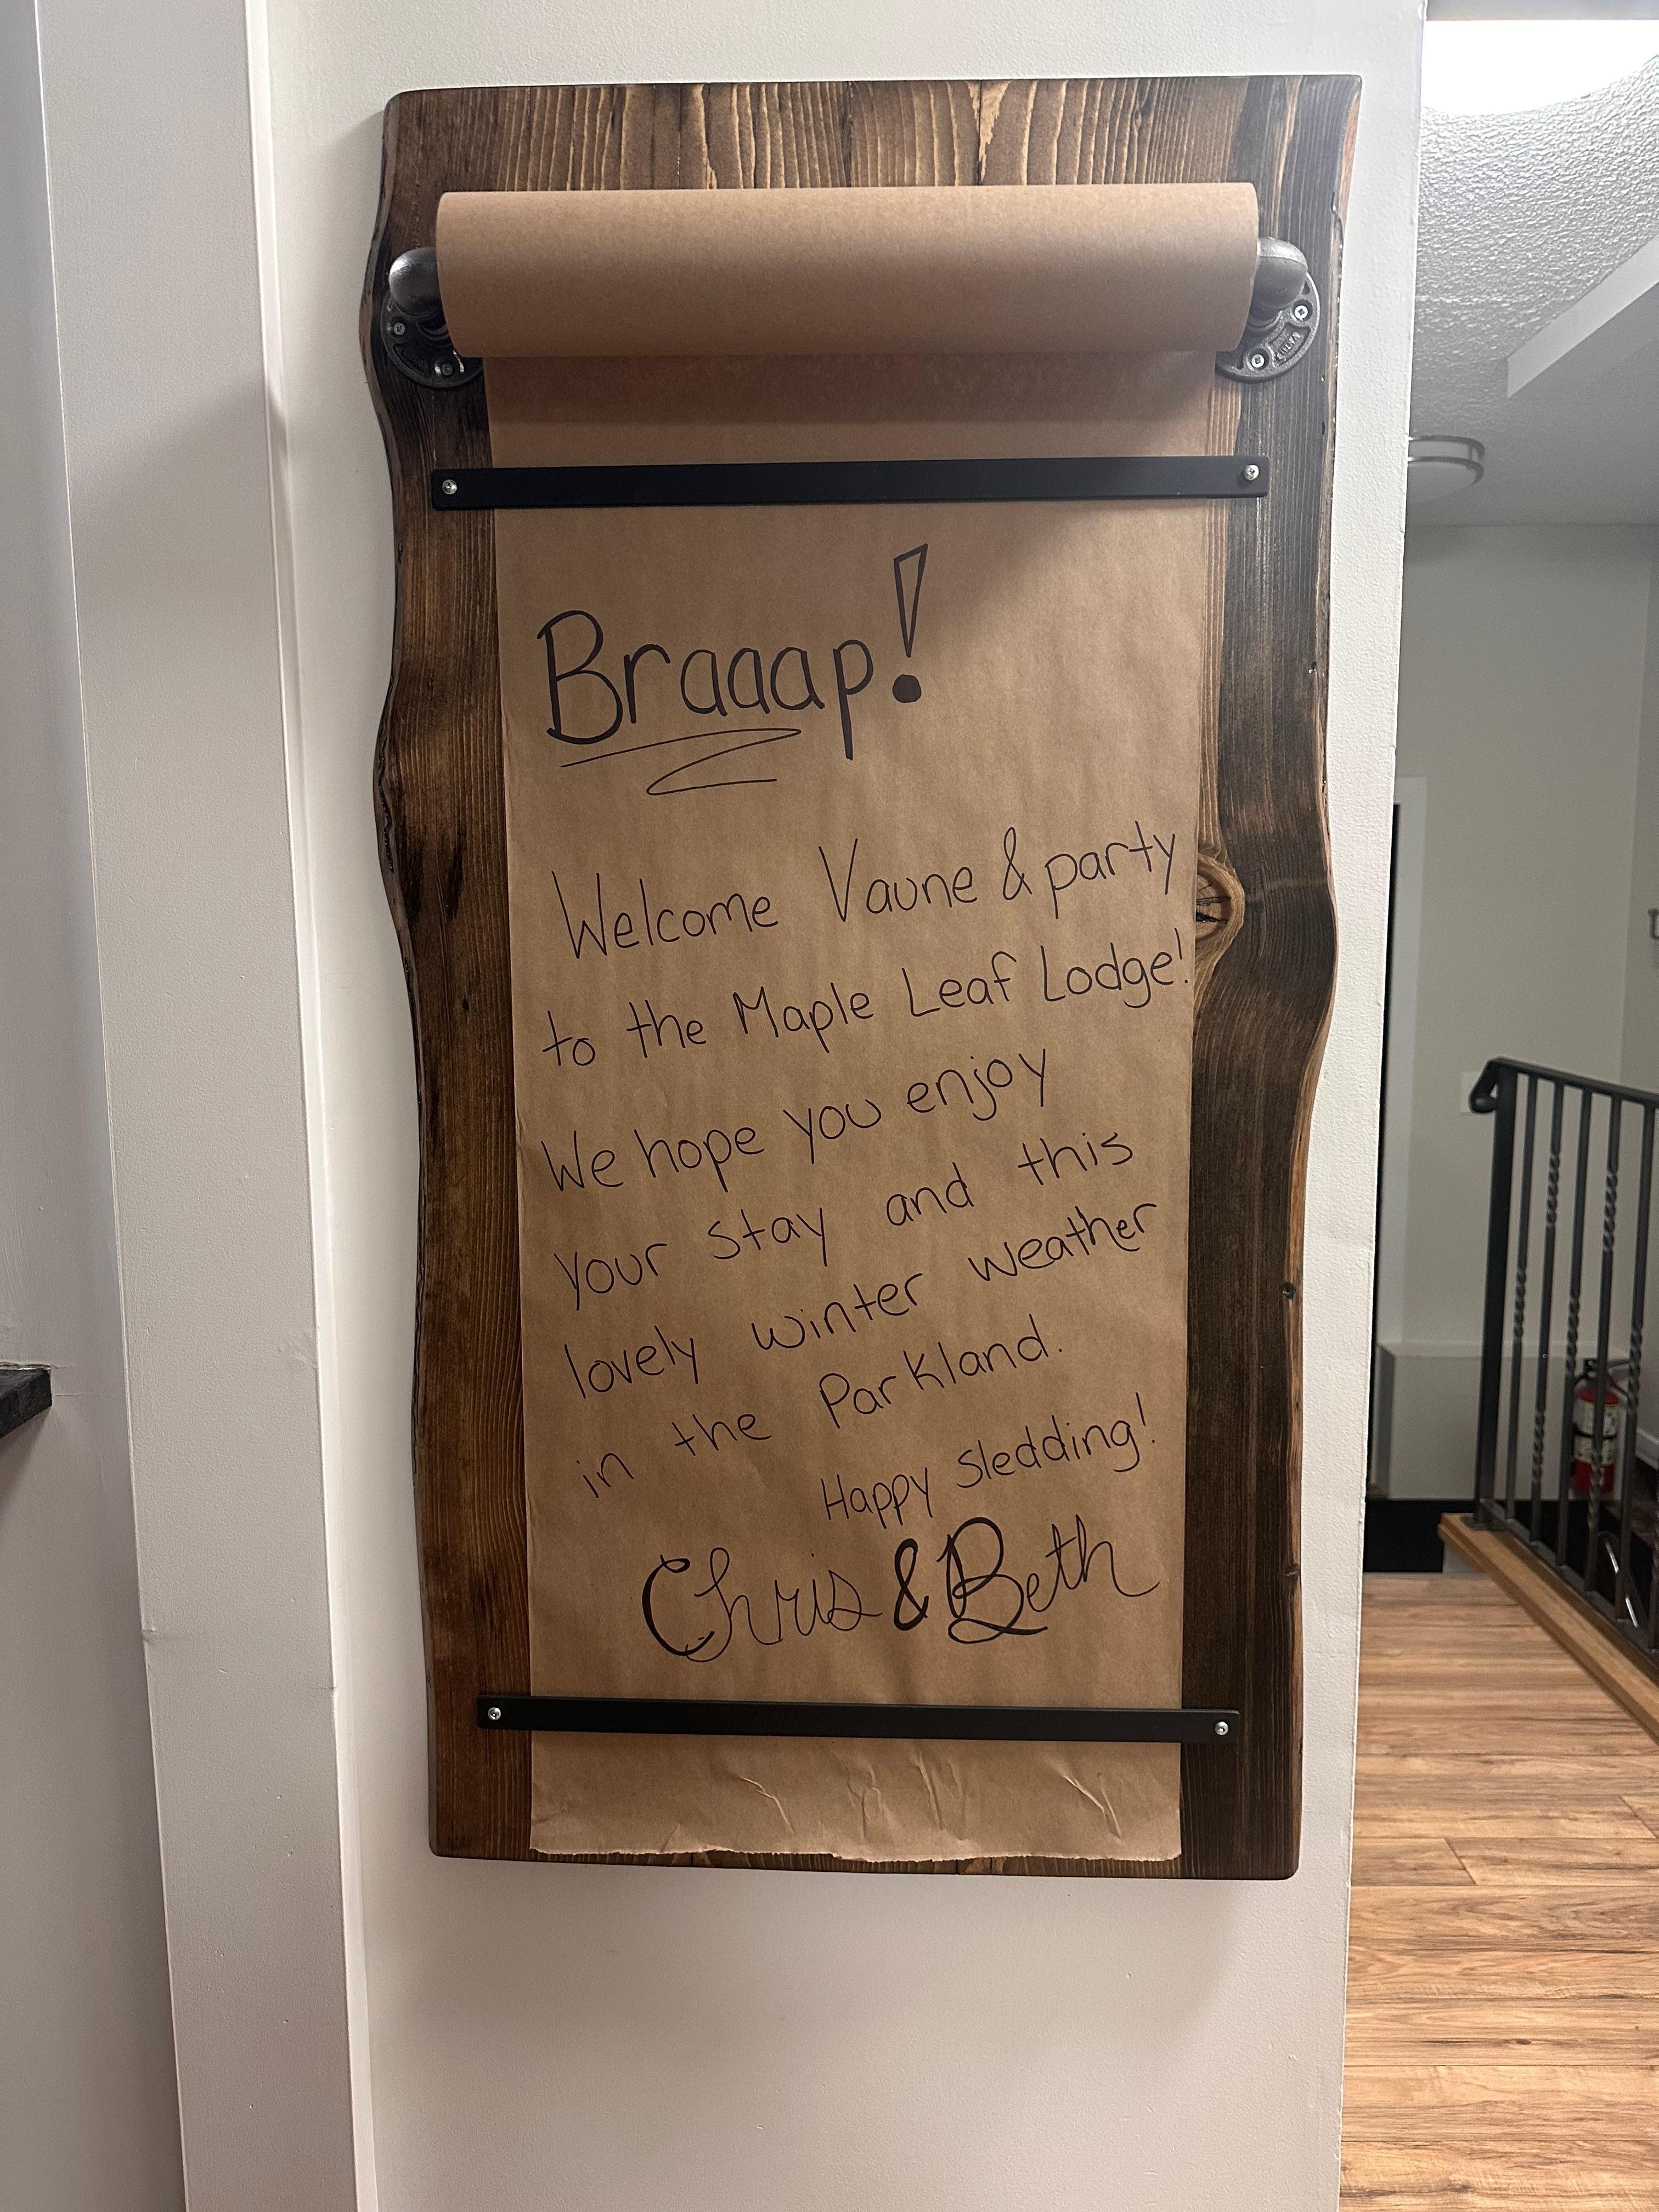 Braaap!
Welcome Vaune & party
to the Maple Leaf Lodge!
We hope you enjoy
your stay and this
lovely winter weather
in the Parkland.
Happy Sledding!
Chris & Beth